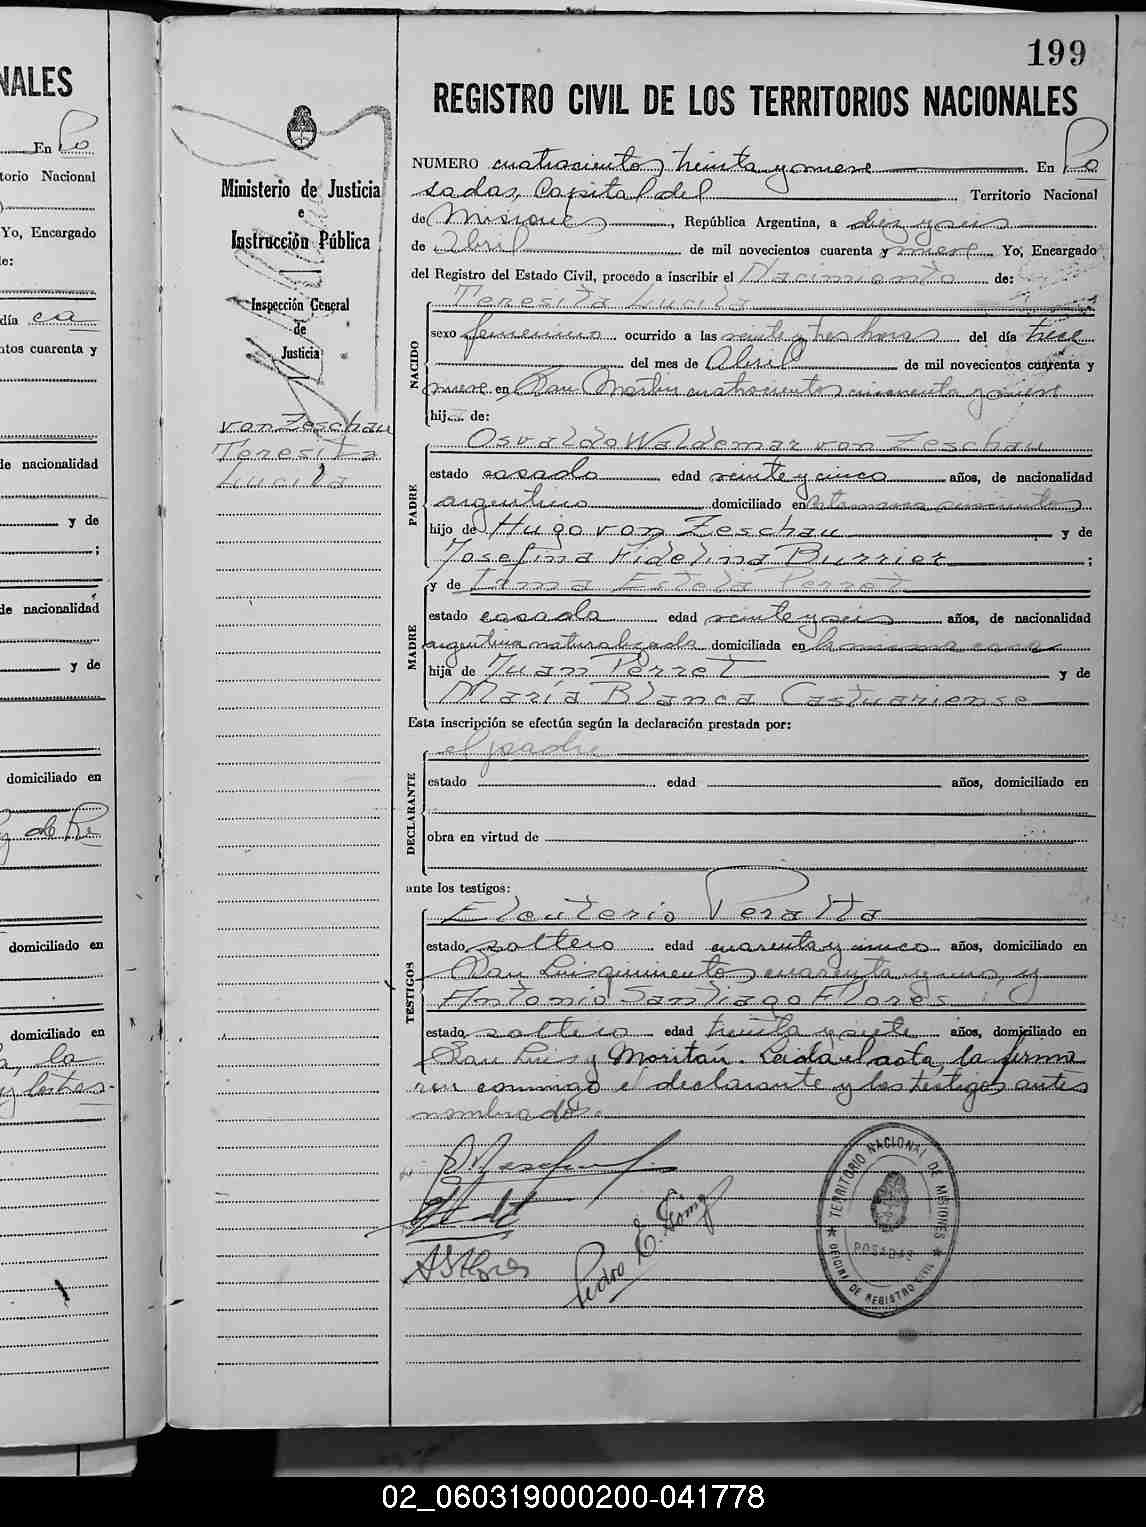 199
REGISTRO CIVIL DE LOS TERRITORIOS NACIONALES
NUMERO cuatrocientos treinta y nueve En Po
sadas, Capital del Territorio Nacional
de Misiones, República Argentina, a diez y seis
de Abril de mil novecientos cuarenta y nueve Yo, Encargado
del Registro del Estado Civil, procedo a inscribir el Nacimiento de:
NACIDO
Teresita Lucila
sexo femenino ocurrido a las veinte y tres horas del día trece
del mes de Abril de mil novecientos cuarenta y
nueve en San Martin cuatrocientos cincuenta y
hij de:
PADRE
Osvaldo Waldemar von Zeschau
estado casado edad veinte y cinco años, de nacionalidad
argentino domiciliado en
hijo de Hugo von Zeschau y de
Josefina Fidelina Burrier ;
y de Irma Estela Perret
MADRE
estado casada edad veinte y seis años, de nacionalidad
argentina naturalizada domiciliada en la misma casa
hija de Juan Perret y de
María Blanca Castuariense
Esta inscripción se efectúa según la declaración prestada por:
DECLARANTE
el padre
estado edad años, domiciliado en
obra en virtud de
ante los testigos:
TESTIGOS
Eleuterio Peralta
estado soltero edad cuarenta y cinco años, domiciliado en
San Luis quinientos cuarenta y uno, y
Antonio Santiago Flores
estado soltero edad treinta y siete años, domiciliado en
San Luis y Moritán. Leida el acta, la firma
ron conmigo el declarante y los testigos antes
nombrados.
ASFlores
Pedro E. Gómez
TERRITORIO NACIONAL DE MISIONES
POSADAS
OFICINA DE REGISTRO CIVIL
Ministerio de Justicia
e
Instrucción Pública
Inspección General
de
Justicia
von Zeschau
Teresita
Lucila
NALES
En Po
torio Nacional
Yo, Encargado
le:
día
ntos cuarenta y
de nacionalidad
y de
;
de nacionalidad
y de
domiciliado en
y de Re
domiciliado en
domiciliado en
la
02_060319000200-041778